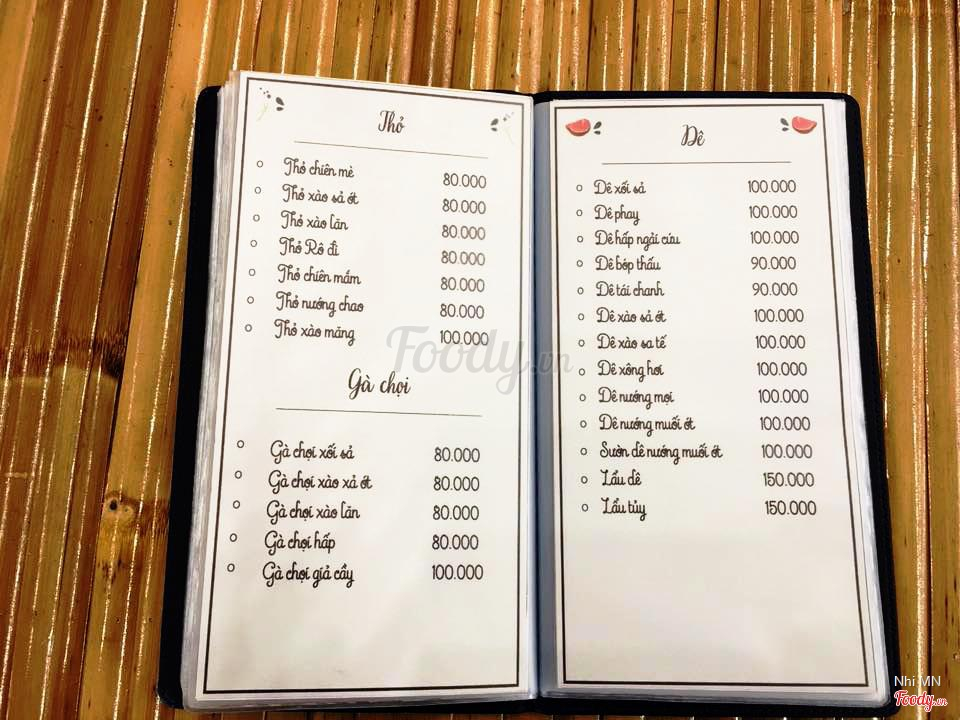 Thỏ
Thỏ chiên mè 80.000
Thỏ xào sả ớt 80.000
Thỏ xào lăn 80.000
Thỏ Rô ti 80.000
Thỏ chiên mắm 80.000
Thỏ nướng chao 80.000
Thỏ xào măng 100.000
Gà chọi
Gà chọi xối sả 80.000
Gà chọi xào xả ớt 80.000
Gà chọi xào lăn 80.000
Gà chọi hấp 80.000
Gà chọi giả cầy 100.000
Dê
Dê xối sả 100.000
Dê phay 100.000
Dê hấp ngải cứu 100.000
Dê bóp thấu 90.000
Dê tái chanh 90.000
Dê xào sả ớt 100.000
Dê xào sa tế 100.000
Dê xông hơi 100.000
Dê nướng mọi 100.000
Dê nướng muối ớt 100.000
Sườn dê nướng muối ớt 100.000
Lẩu dê 150.000
Lẩu tủy 150.000
Foody.vn
Nhi MN
Foody.vn